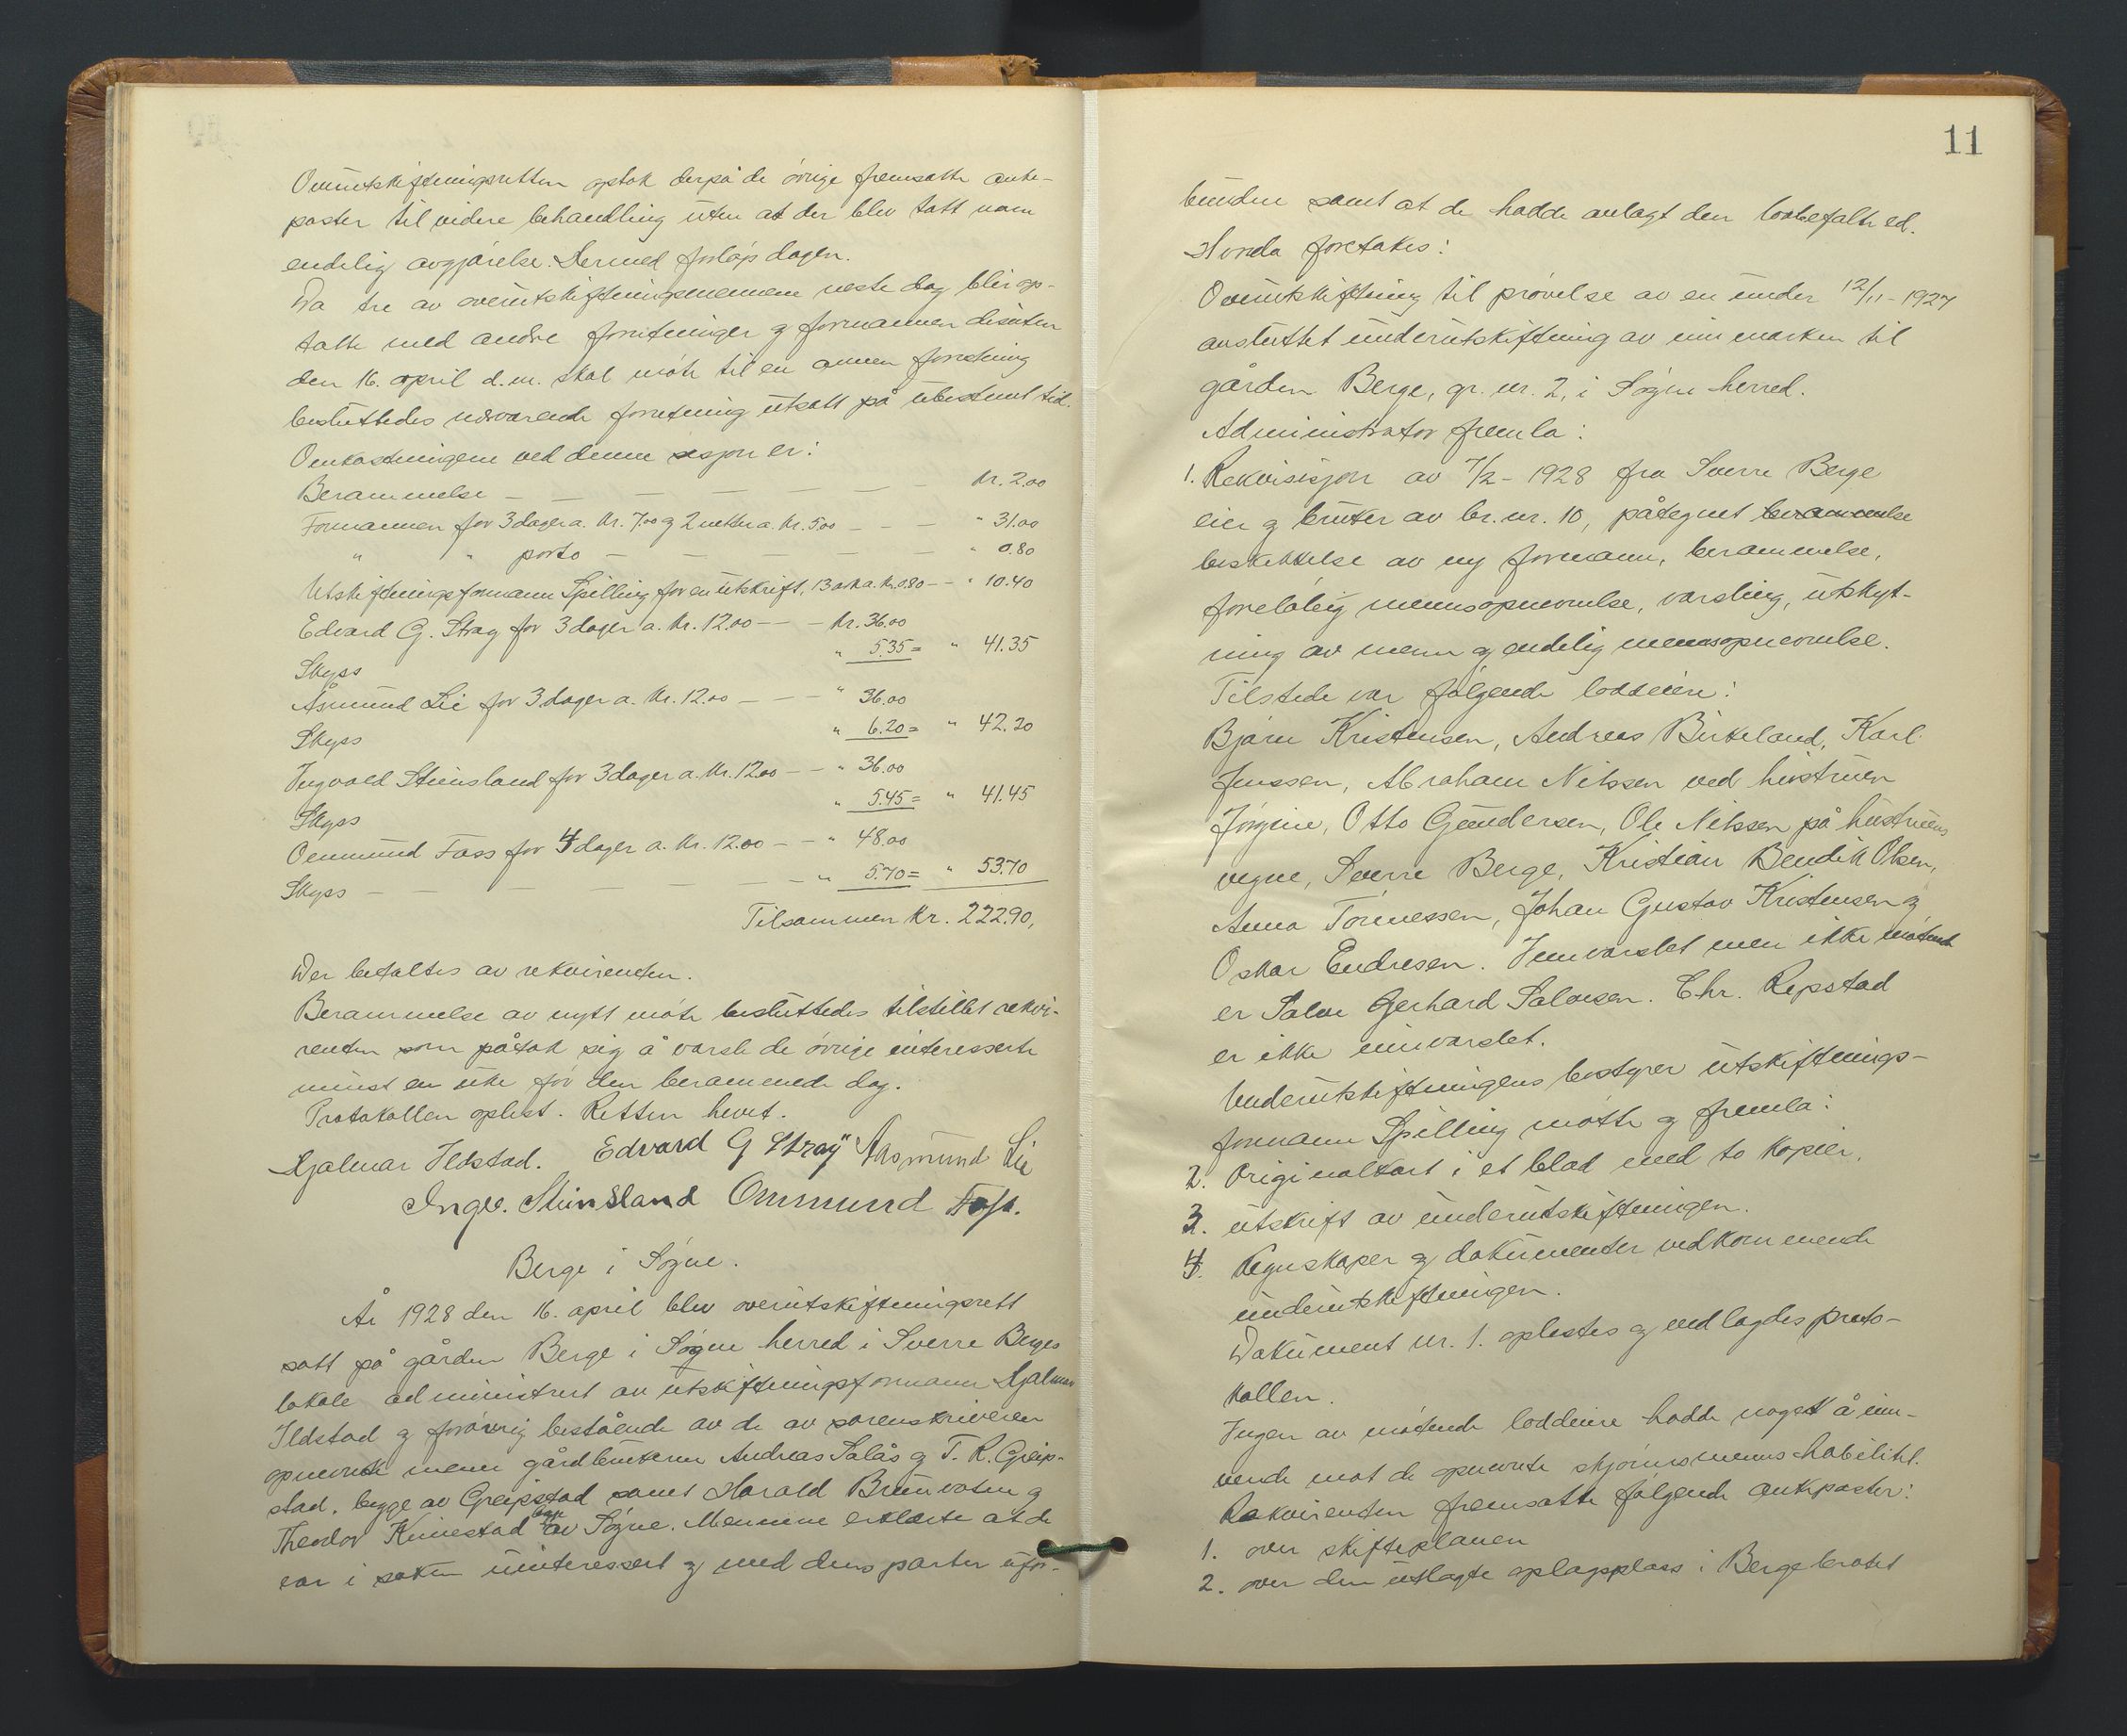 Overutskiftningsretten optok derpå de øvrige fremsatte anke-
poster til videre behandling uten at der blev tatt noen
endelig avgjørelse. Dermed forløp dagen.
Da tre av overutskiftningsmennene neste dag blir op-
tatte med andre forretninger og formannen desuten
den 16. april d.m. skal møte til en annen forretning
besluttedes nærværende forretning utsatt på ubestemt tid.
Omkostningene ved denne sesjon er:
Berammelse — — — — — — — kr. 2.00
Formannen for 3 dager a. kr. 7.00 og 2 netter a. kr. 5.00 — — — " 31.00
" " porto — — — — — — " 0.80
Utskiftningsformann Spilling for en utskrift, 13 ark a. kr. 0.80 — — " 10.40
Edvard G. Stray for 3 dager a. kr. 12.00 — — — kr. 36.00
Skyss " 5.35 = " 41.35
Åsmund Lie for 3 dager a. kr. 12.00 — — — " 36.00
Skyss " 6.20 = " 42.20
Ingvald Stensland for 3 dager a. kr. 12.00 — — " 36.00
Skyss " 5.45 = " 41.45
Ommund Fass for 4 dager a. kr. 12.00 — — " 48.00
Skyss — — — — — — " 5.70 = " 53.70
Tilsammen kr. 222.90,
Der betaltes av rekvirenten.
Berammelse av nytt møte besluttedes tilstillet rekvi-
renten som påtok sig å varsle de øvrige interesserte
minst en uke før den berammede dag.
Protokollen oplest. Retten hevet.
Hjalmar Ildstad. Edvard G Stray Aasmund Lie
Ingv. Stensland Ommund Foss.
Berge i Søgne.
År 1928 den 16. april blev overutskiftningsrett
satt på gården Berge i Søgne herred i Sverre Berges
lokale administrert av utskiftningsformann Hjalmar
Ildstad og forøvrig bestående av de av sorenskriveren
opnevnte menn gårdbrukerne Andreas Salås og T. R. Greip-
stad, begge av Greipstad samt Harald Brunvatn og
Theodor Kunestad begge av Søgne. Mennene erklærte at de
var i saken uinteressert og med dens parter ufor-
11
bunden samt at de hadde avlagt den lovbefalte ed.
Hvorda foretakes:
Overutskiftning til prøvelse av en under 12/11 - 1927
avsluttet underutskiftning av innmarken til
gården Berge, gr. nr. 2, i Søgne herred.
Administrator fremla:
1. Rekvisisjon av 7/2 - 1928 fra Sverre Berge
eier og bruker av br. nr. 10, påtegnet berammelse
beskikkelse av ny formann, berammelse,
foreløbig mennsopnevnelse, varsling, utskyt-
ning av menn og endelig mennsopnevnelse.
Tilstede var følgende loddeiere:
Bjarne Kristensen, Andreas Birkeland, Karl
Jenssen, Abraham Nilssen ved hustruen
Jørgine, Otto Gundersen, Ole Nilssen på hustruens
vegne, Sverre Berge, Kristian Bendik Olsen,
Anna Tønnessen, Johan Gustav Kristensen og
Oskar Endresen. Innvarslet men ikke møtende
er Salve Gerhard Salvesen. Chr. Repstad
er ikke innvarslet.
Underutskiftningens bestyrer utskiftnings-
formann Spilling møtte og fremla:
2. Originalkart i et blad med to kopier.
3. utskrift av underutskiftningen.
4. Regnskaper og dokumenter vedkommende
underutskiftningen.
Dokument nr. 1. oplestes og vedlagdes proto-
kollen.
Ingen av møtende loddeiere hadde noget å inn-
vende mot de opnevnte skjønnsmenns habilitet.
Rekvirenten fremsatte følgende ankeposter:
1. over skifteplanen
2. over den utlagte oplagsplass i Bergebrotet